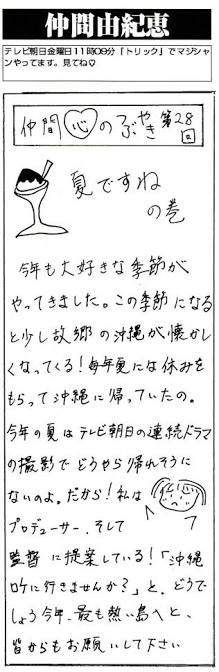 仲間由紀恵
テレビ朝日金曜日11時09分「トリック」でマジシャ
ンやってます。見てね♡
仲間心のつぶやき第28回
夏ですね
の巻
今年も大好きな季節が
やってきました。この季節になる
と少し故郷の沖縄が懐かし
くなってくる！毎年夏には休みを
もらって沖縄に帰っていたの。
今年の夏はテレビ朝日の連続ドラマ
の撮影でどうやら帰れそうに
ないのよ。だから！私は
プロデューサー、そして
監督に提案している！「沖縄
ロケに行きませんか？」と、どうで
しょう今年、最も熱い島へと、
皆からもお願いして下さい